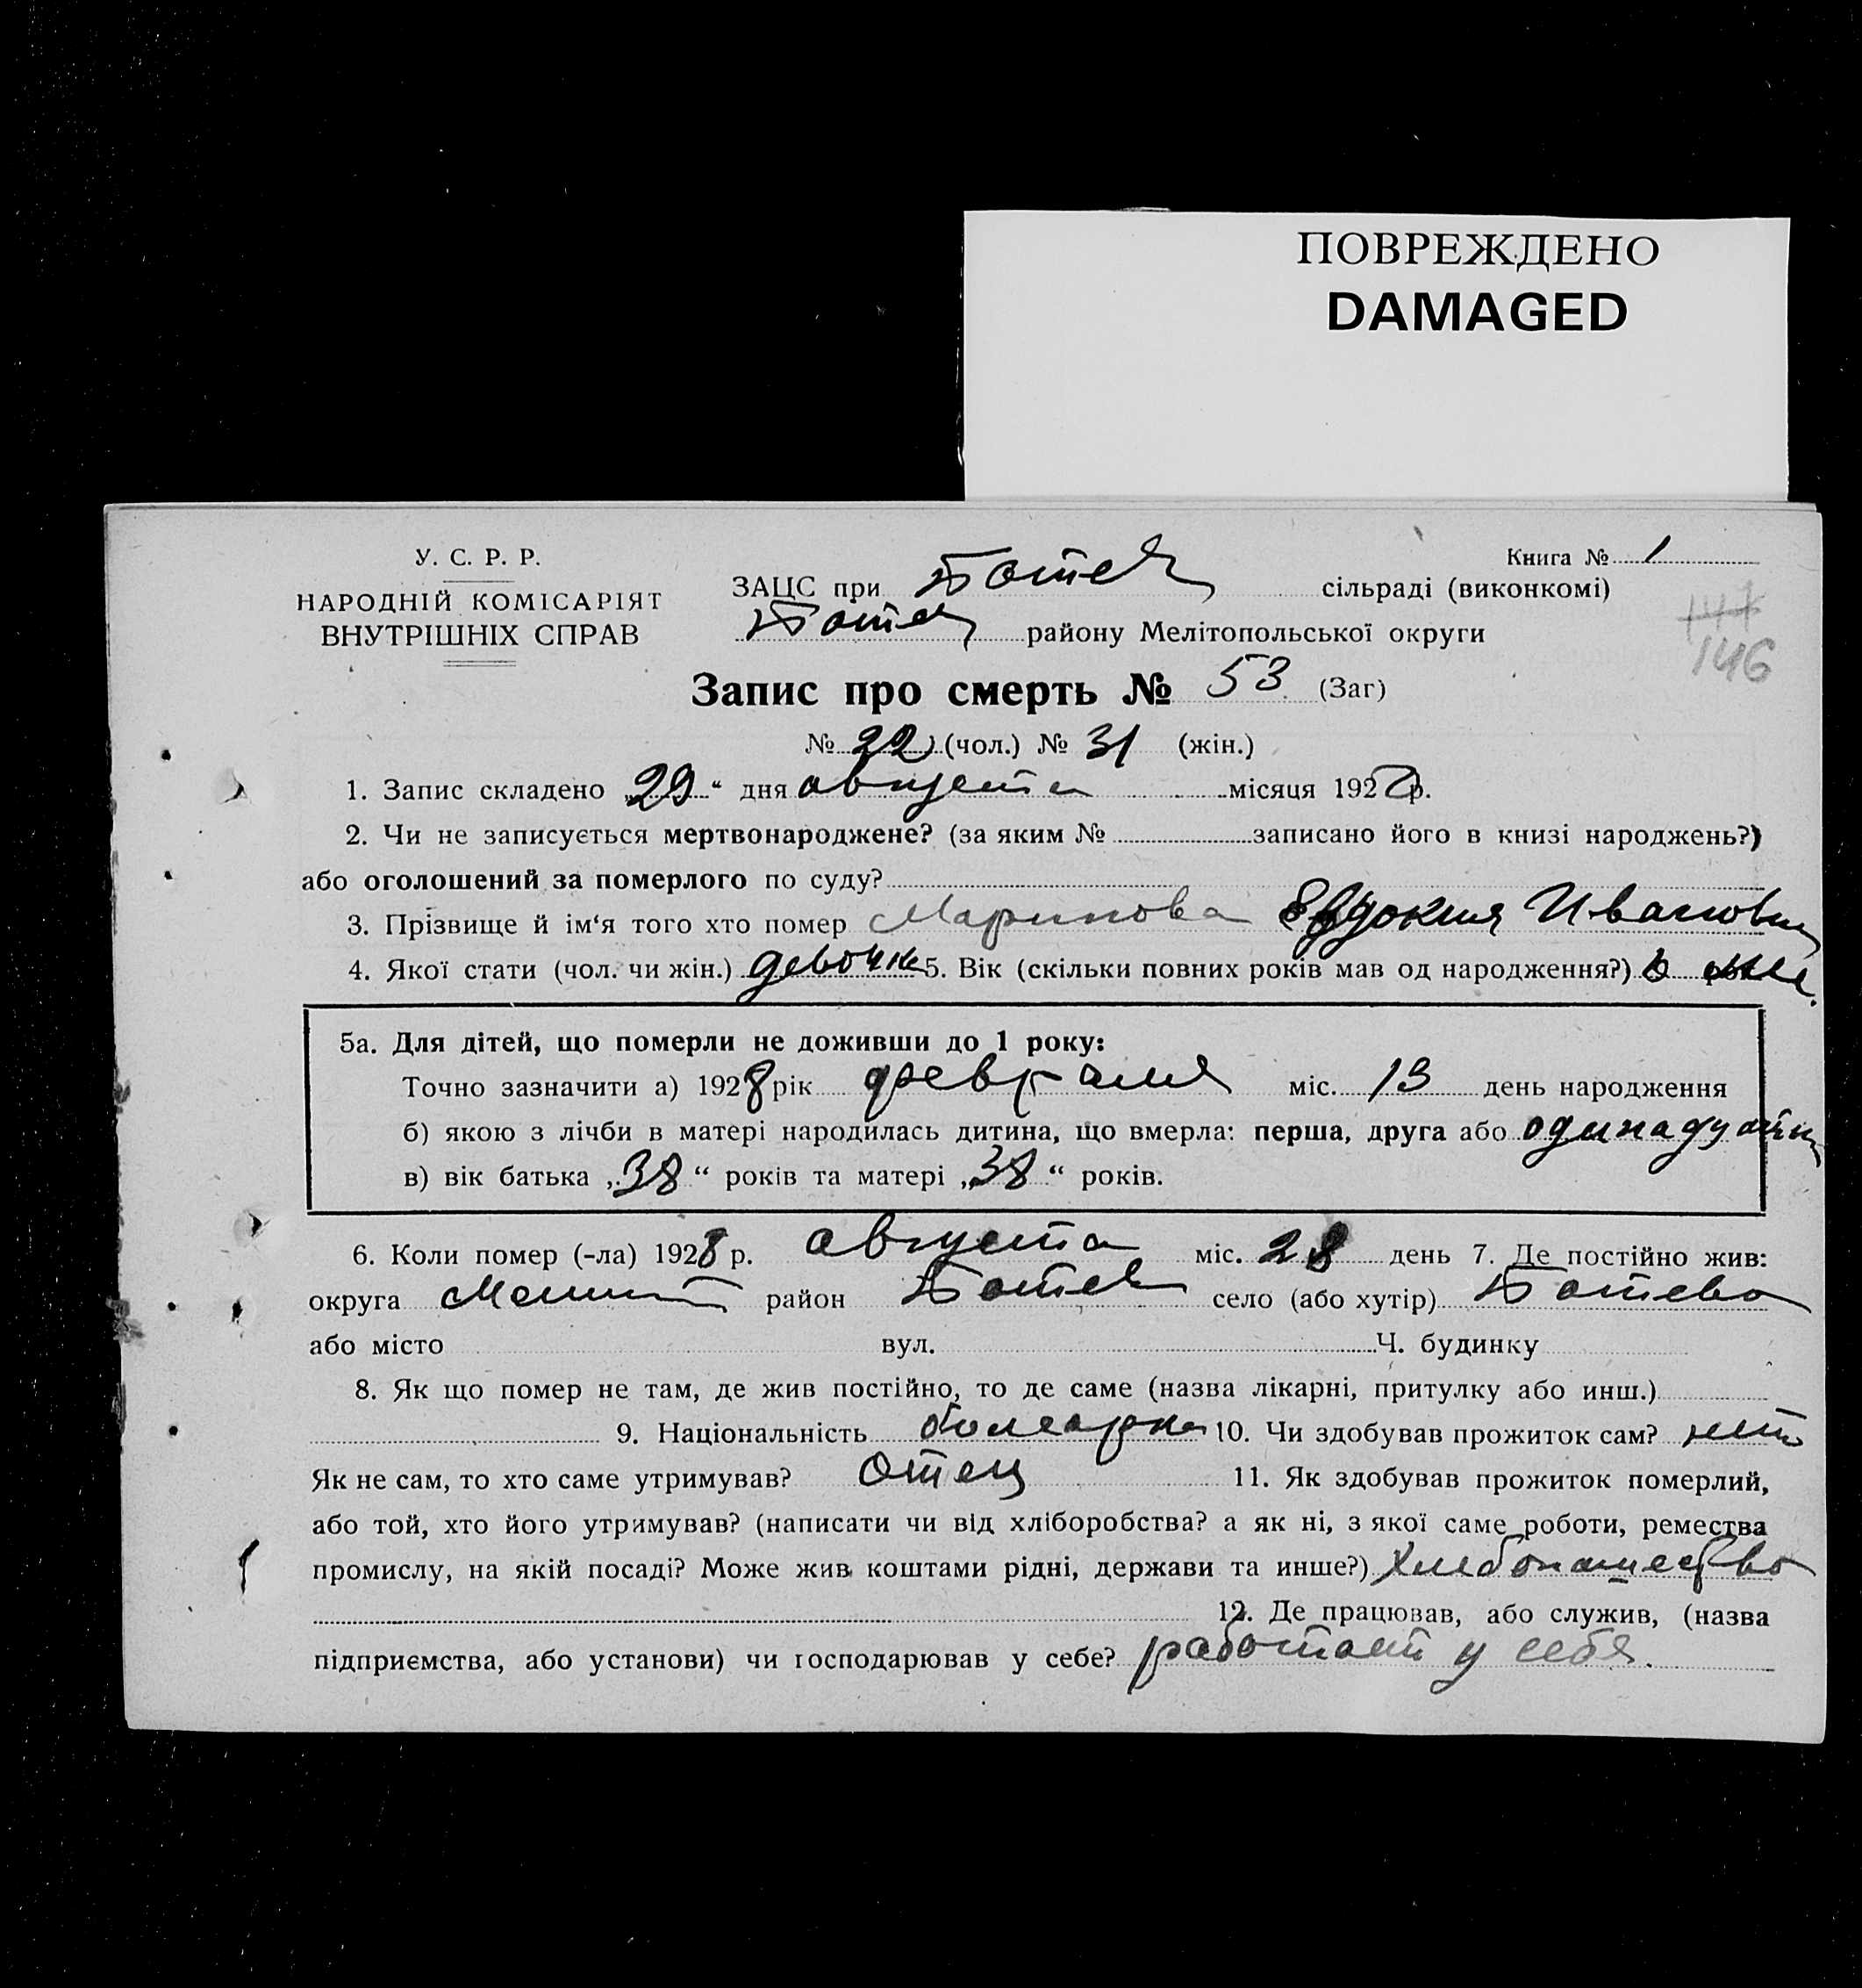 ПОВРЕЖДЕНО
DAMAGED
У. С. Р. Р.
НАРОДНІЙ КОМІСАРІЯТ
ВНУТРІШНІХ СПРАВ
Книга № 1
ЗАЦС при Ботев сільраді (виконкомі)
Ботев району Мелітопольської округи
147
146
Запис про смерть № 53 (Заг)
№ 22 (чол.) № 31 (жін.)
1. Запис складено „29“ дня августа місяця 1928 р.
2. Чи не записується мертвонароджене? (за яким № записано його в книзі народжень?)
або оголошений за померлого по суду?
3. Прізвище й ім‘я того хто помер Маринова Евдокия Ивановна
4. Якої стати (чол. чи жін.) девочка 5. Вік (скільки повних років мав од народження?) 6 ме.
5а. Для дітей, що померли не доживши до 1 року:
Точно зазначити а) 1928 рік февраля міс. 13 день народження
б) якою з лічби в матері народилась дитина, що вмерла: перша, друга або
в) вік батька „38“ років та матері „38“ років.
6. Коли помер (-ла) 1928 р. августа міс. 28 день 7. Де постійно жив:
округа Мелит район Ботев село (або хутір) Ботево
або місто вул. Ч. будинку
8. Як що помер не там, де жив постійно, то де саме (назва лікарні, притулку або инш.)
9. Національність болгарка 10. Чи здобував прожиток сам? нет
Як не сам, то хто саме утримував? Отец 11. Як здобував прожиток померлий,
або той, хто його утримував? (написати чи від хліборобства? а як ні, з якої саме роботи, ремества
промислу, на якій посаді? Може жив коштами рідні, держави та инше?) Хлебопашество
12. Де працював, або служив, (назва
підприємства, або установи) чи господарював у себе? работает у себя.